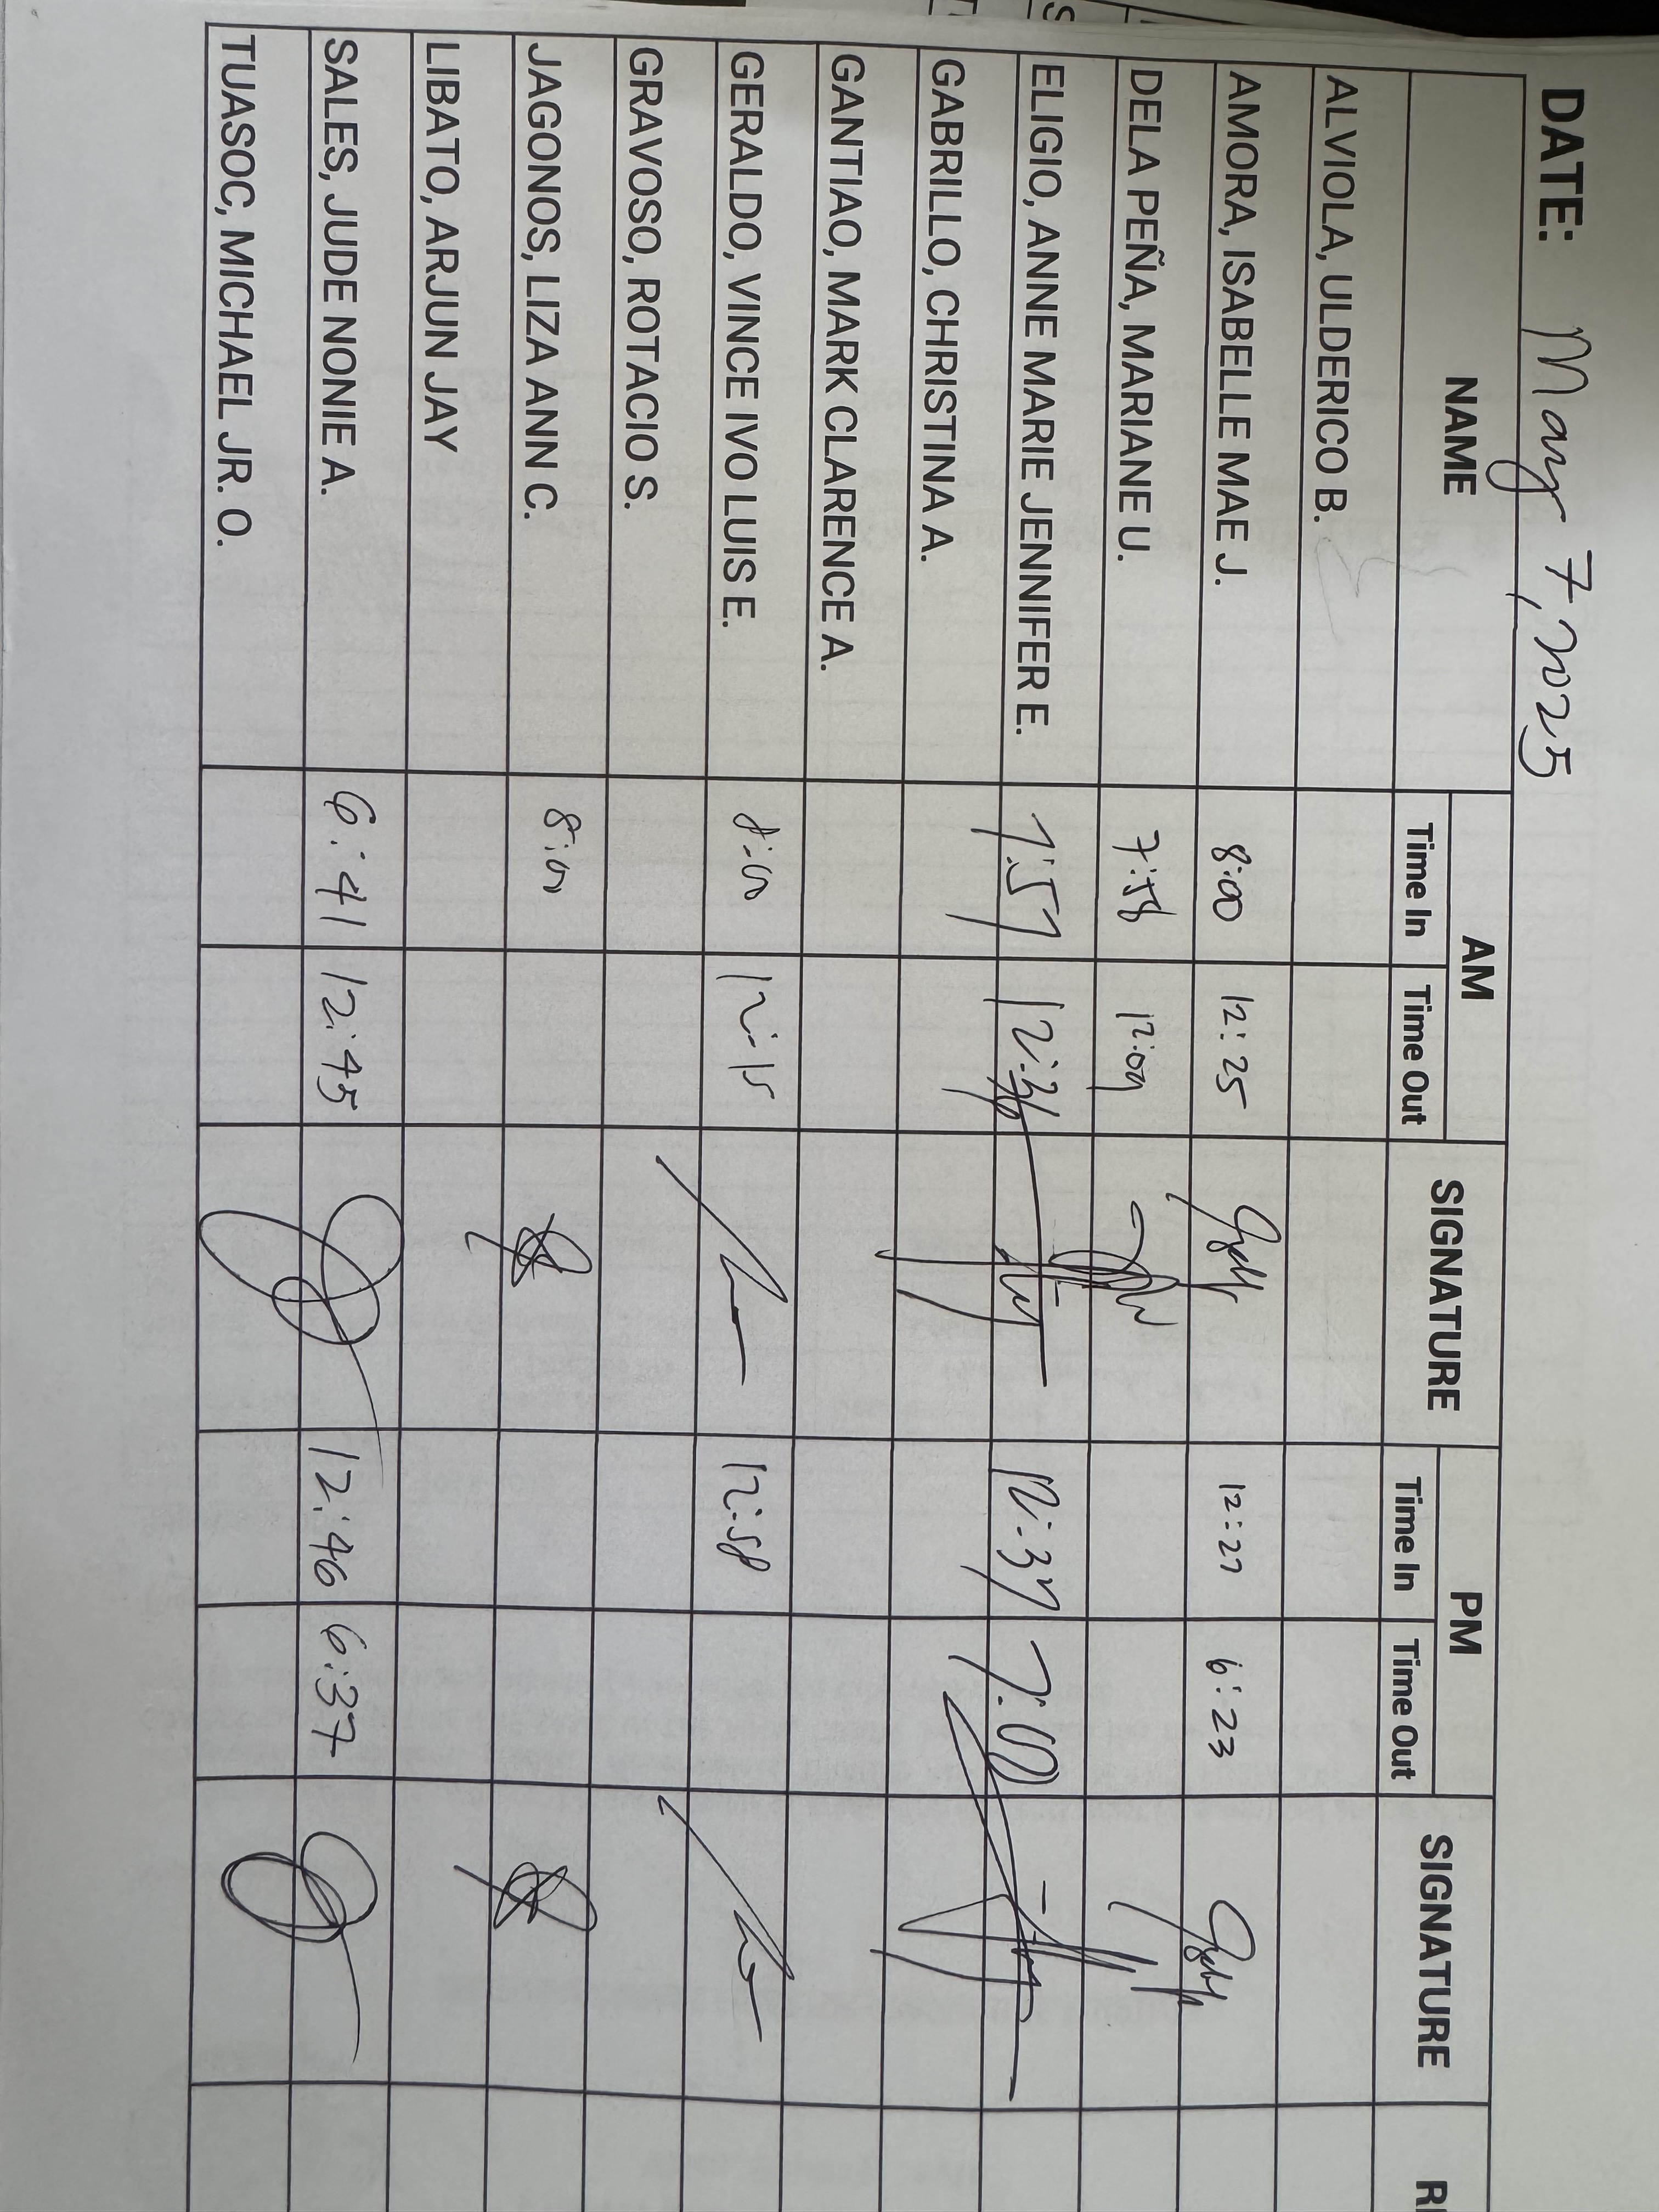 DATE: May 7, 2025
NAME AM SIGNATURE PM SIGNATURE
Time In Time Out Time In Time Out
ALVIOLA, ULDERICO B.
AMORA, ISABELLE MAE J. 8:00 12:25 12:27 6:23
DELA PEÑA, MARIANE U. 7:58 12:09
ELIGIO, ANNE MARIE JENNIFER E. 7:57 12:36 12:37 7:00
GABRILLO, CHRISTINA A.
GANTIAO, MARK CLARENCE A.
GERALDO, VINCE IVO LUIS E. 8:00 12:15 12:58
GRAVOSO, ROTACIO S.
JAGONOS, LIZA ANN C. 8:00
LIBATO, ARJUN JAY
SALES, JUDE NONIE A. 6:41 12:45 12:46 6:37
TUASOC, MICHAEL JR. O.